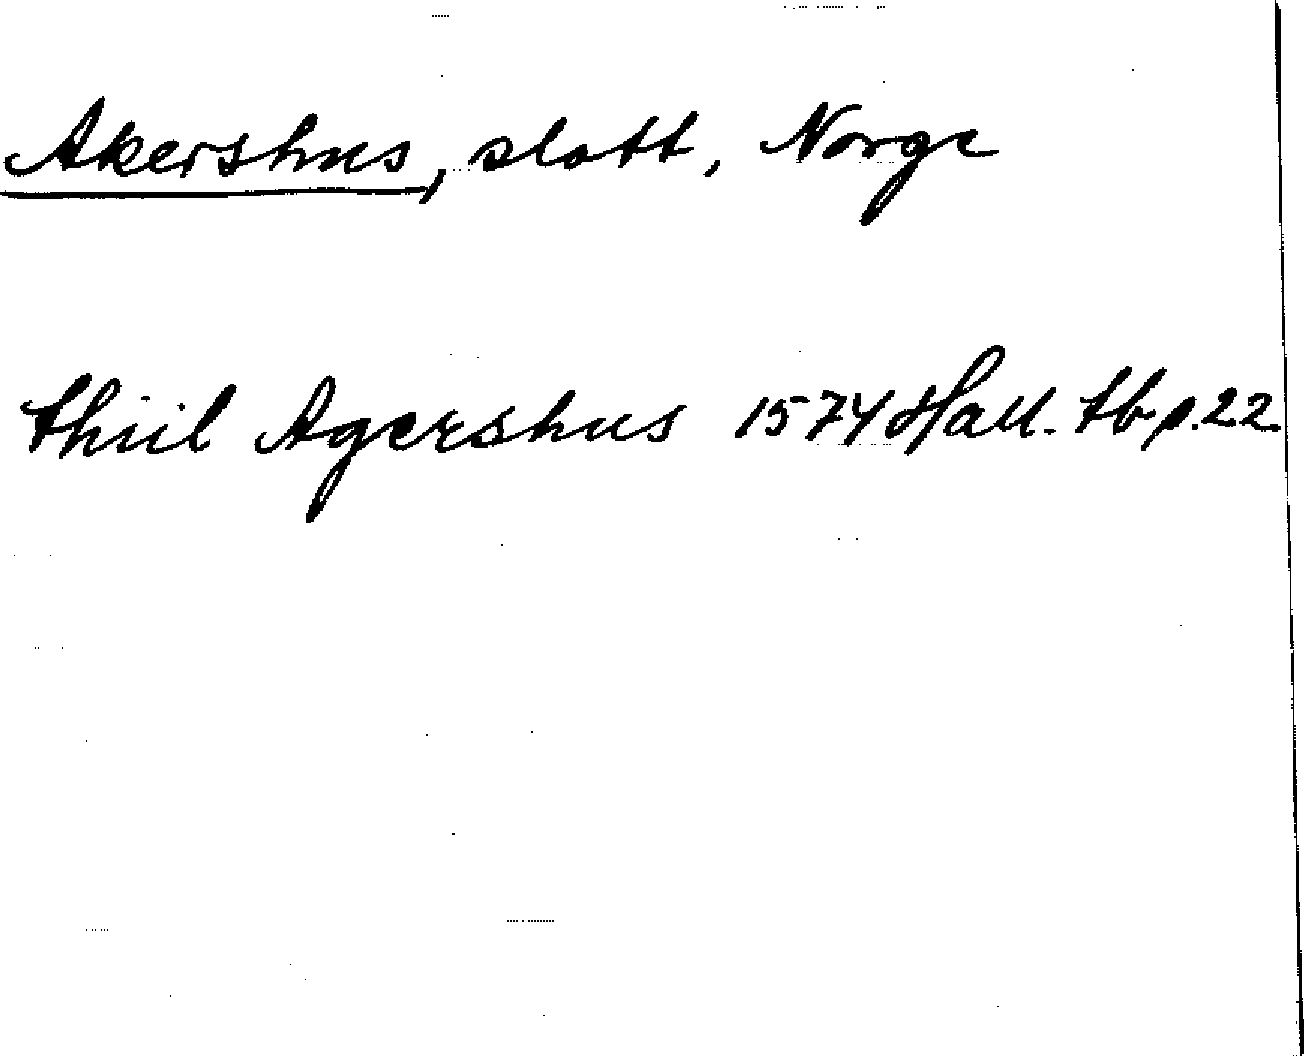 Akershus, slott, Norge
thiil Agershus 1574 Hall. tb p. 22